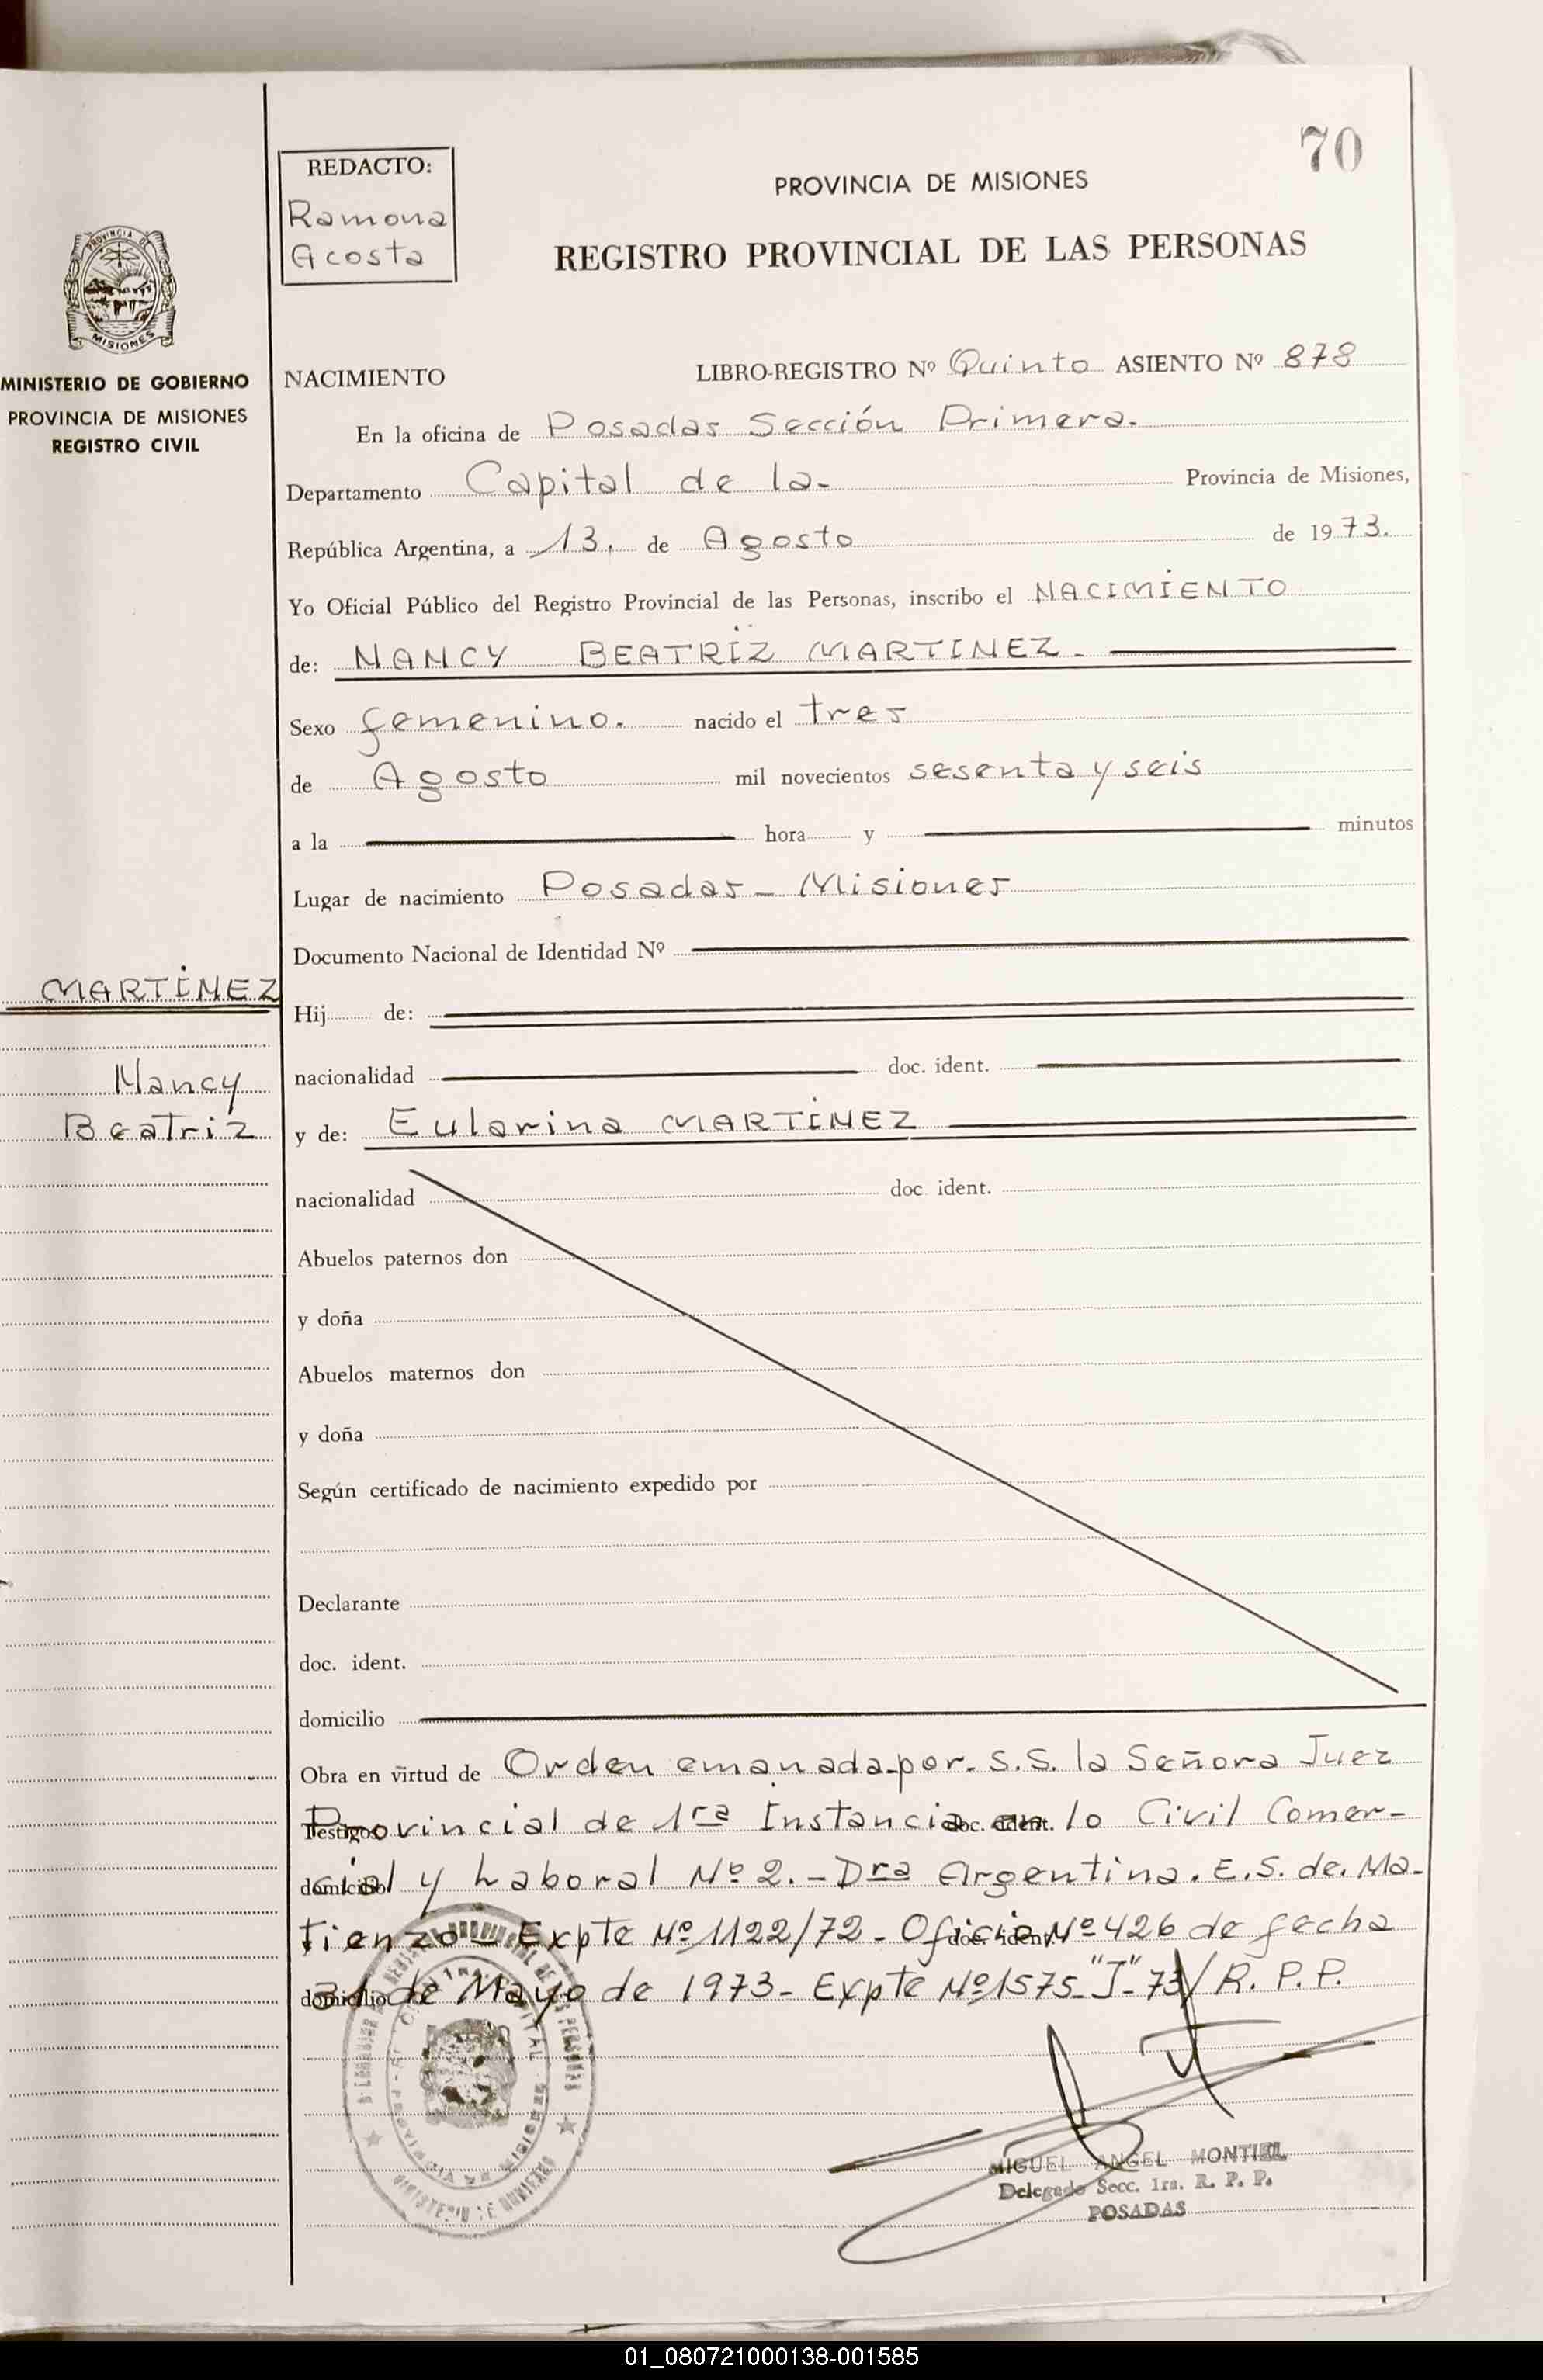 70
REDACTO:
Ramona
Acosta
PROVINCIA DE MISIONES
REGISTRO PROVINCIAL DE LAS PERSONAS
PROVINCIA DE
MISIONES
MINISTERIO DE GOBIERNO
PROVINCIA DE MISIONES
REGISTRO CIVIL
NACIMIENTO LIBRO-REGISTRO Nº Quinto ASIENTO Nº 878
En la oficina de Posadas Sección Primera.
Departamento Capital de la- Provincia de Misiones,
República Argentina, a 13. de Agosto de 1973.
Yo Oficial Público del Registro Provincial de las Personas, inscribo el NACIMIENTO
de: NANCY BEATRIZ MARTINEZ.
Sexo femenino. nacido el tres
de Agosto mil novecientos sesenta y seis
a la hora y minutos
Lugar de nacimiento Posadas - Misiones
Documento Nacional de Identidad Nº
MARTINEZ
Hij de:
Nancy
nacionalidad doc. ident.
Beatriz
y de: Eularina MARTINEZ
nacionalidad doc ident.
Abuelos paternos don
y doña
Abuelos maternos don
y doña
Según certificado de nacimiento expedido por
Declarante
doc. ident.
domicilio
Obra en virtud de Orden emanada por. S.S. la Señora Juez
Testigos doc. ident.
Provincial de 1ra Instancia en lo Civil Comer-
domicilio
cial y Laboral Nº 2.- Dra Argentina. E. S. de. Ma-
doc. ident.
tienzo - Expte Nº 1122/72 - Oficio Nº 426 de fecha
domicilio
31 de Mayo de 1973 - Expte Nº 1575-"J"-73/ R. P. P.
MIGUEL ANGEL MONTIEL
Delegado Secc. 1ra. R. P. P.
POSADAS
01_080721000138-001585